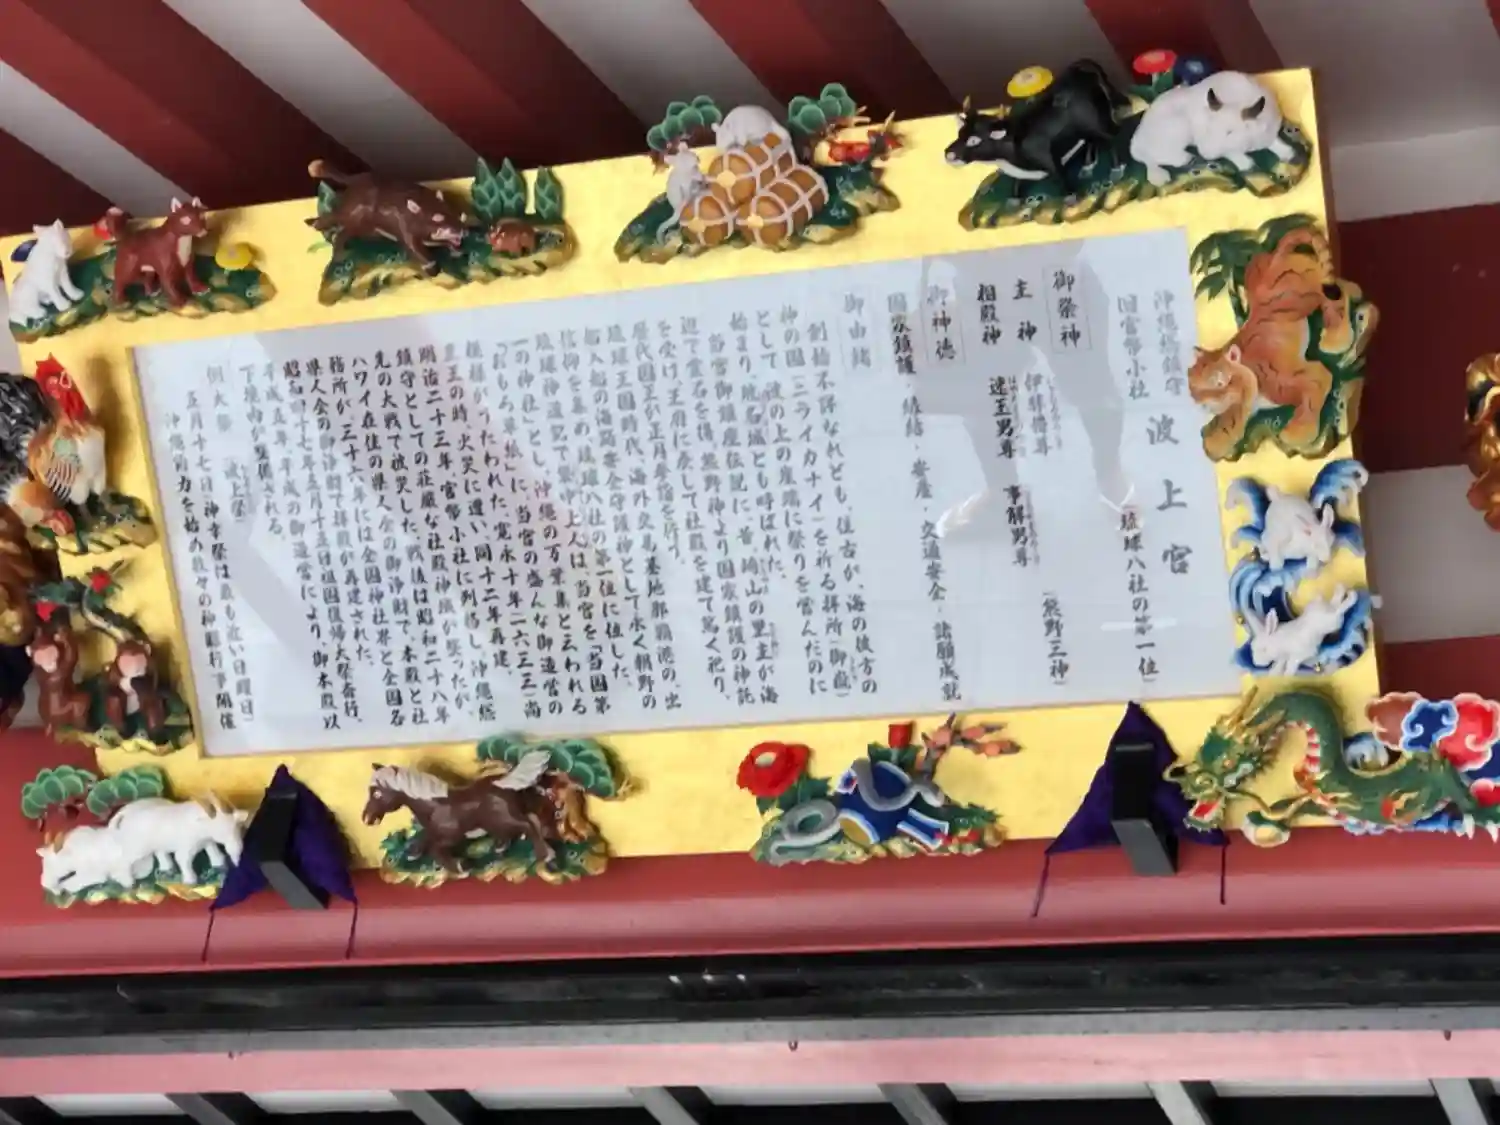 沖縄総鎮守
旧官幣小社
波上宮
(琉球八社の第一位)
御祭神
主神 伊弉冊尊
相殿神 速玉男尊 事解男尊
(熊野三神)
御神徳
国家鎮護・縁結・安産・交通安全・諸願成就
御由緒
創始不詳なれども、往古が、海の彼方の
神の国(ニライカナイ)を祈る拝所(御嶽)
として、波の上の崖端に祭りを営んだのに
始まり、地名城とも呼ばれた。
当宮御鎮座伝説に、昔、崎山の里主が海
辺で霊石を得、熊野神より国家鎮護の神託
を受け、王府に戻して社殿を建て篤く祀り、
歴代国王が正月参詣を行う。
琉球王国時代、海外交易基地那覇港の、出
船入船の海路安全守護神として永く朝野の
信仰を集め、琉球八社の第一位に位した。
琉球神道記で袋中上人は、当宮を「当国第
一の神社」とし、沖縄の万葉集と云われる
「おもろ草紙」に、当宮の盛んな御造営の
模様がうたわれた。寛永十年(一六三三)尚
豊王の時、火災に遭い、同十二年再建。
明治二十三年、官幣小社に列格し、沖縄総
鎮守としての荘厳な社殿神域が整ったが、
先の大戦で被災した。戦後は昭和二十八年
ハワイ在住の県人会の御浄財で、本殿と社
務所が、三十六年には全国神社界と全国各
県人会の御浄財で拝殿が再建された。
昭和四十七年五月十五日祖国復帰大祭斎行。
平成五年、平成の御造営により、御本殿以
下境内が整備される。
例大祭 (波上祭)
五月十七日(神幸祭は最も近い日曜日)
沖縄角力を始め数々の神賑行事開催